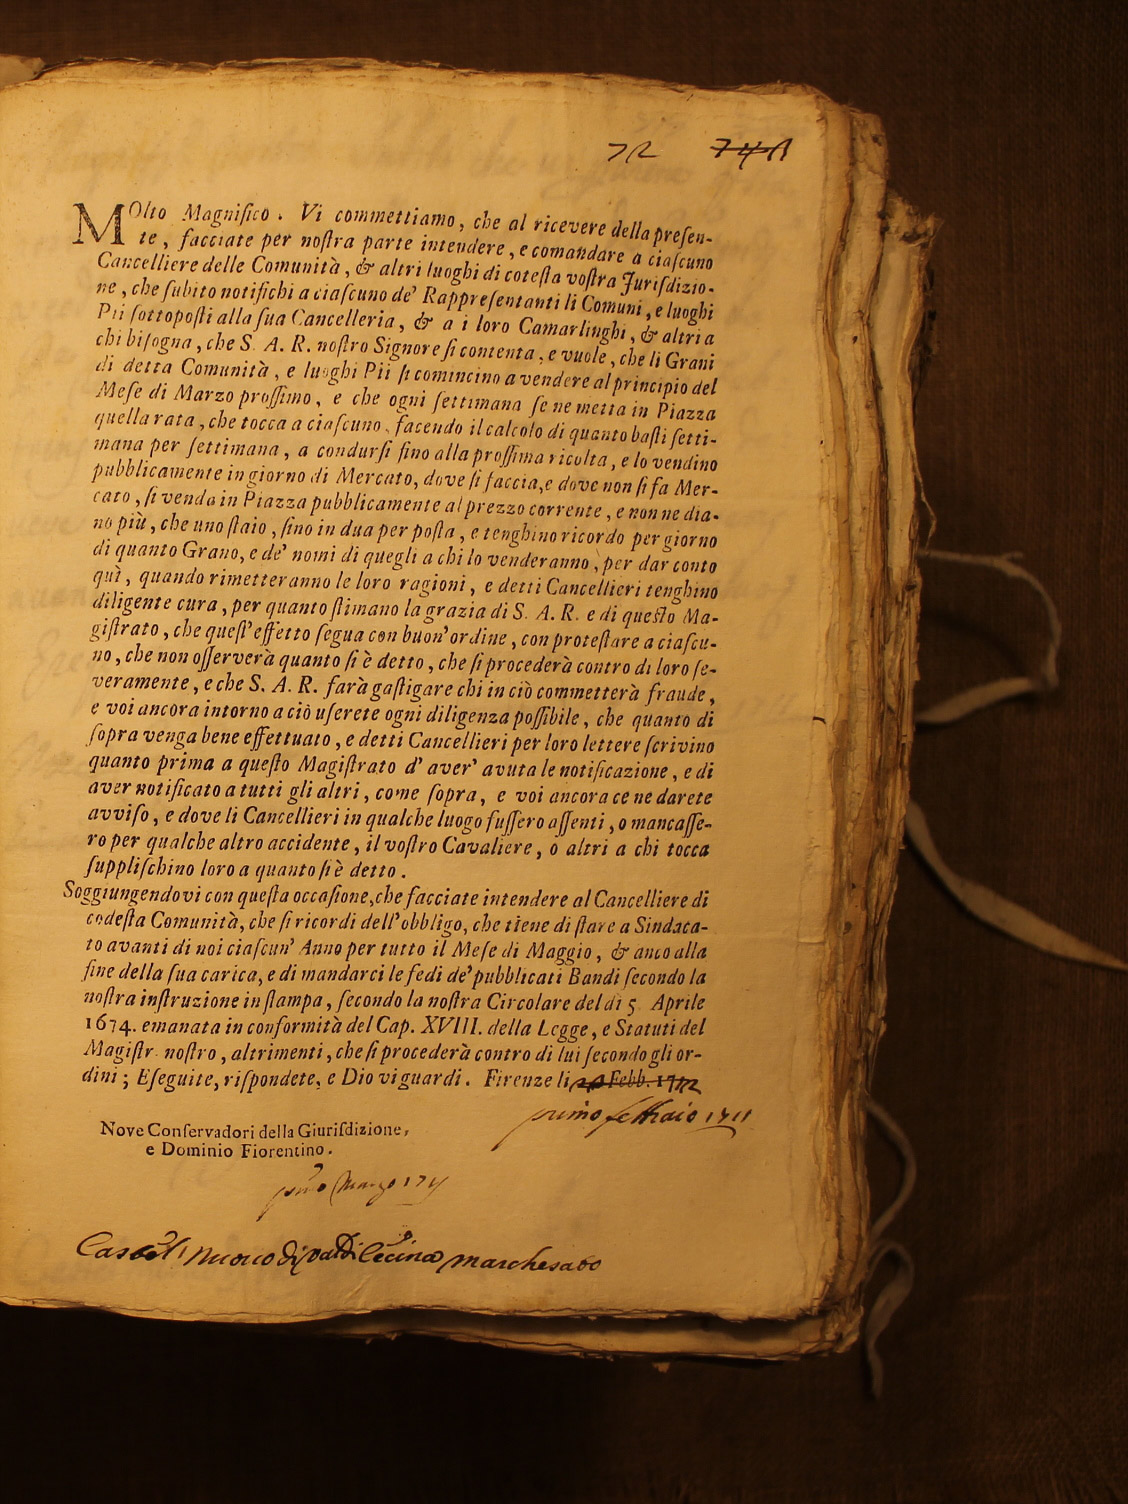 72 741
MOlto Magnifico. Vi commettiamo, che al ricevere della presen-
te, facciate per nostra parte intendere, e comandare a ciascuno
Cancelliere delle Comunità, & altri luoghi di cotesta vostra Jurisdizio-
ne, che subito notifichi a ciascuno de' Rappresentanti li Comuni, e luoghi
Pii sottoposti alla sua Cancelleria, & a i loro Camarlinghi, & altri a
chi bisogna, che S. A. R. nostro Signore si contenta, e vuole, che li Grani
di detta Comunità, e luoghi Pii si comincino a vendere al principio del
Mese di Marzo prossimo, e che ogni settimana se ne metta in Piazza
quella rata, che tocca a ciascuno, facendo il calcolo di quanto basti setti-
mana per settimana, a condursi fino alla prossima ricolta, e lo vendino
pubblicamente in giorno di Mercato, dove si faccia, e dove non si fa Mer-
cato, si venda in Piazza pubblicamente al prezzo corrente, e non ne dia-
no più, che uno staio, sino in dua per posta, e tenghino ricordo per giorno
di quanto Grano, e de' nomi di quegli a chi lo venderanno, per dar conto
quì, quando rimetteranno le loro ragioni, e detti Cancellieri tenghino
diligente cura, per quanto stimano la grazia di S. A. R. e di questo Ma-
gistrato, che quest' effetto segua con buon' ordine, con protestare a ciascu-
no, che non osserverà quanto si è detto, che si procederà contro di loro se-
veramente, e che S. A. R. farà gastigare chi in ciò commetterà fraude,
e voi ancora intorno a ciò userete ogni diligenza possibile, che quanto di
sopra venga bene effettuato, e detti Cancellieri per loro lettere scrivino
quanto prima a questo Magistrato d' aver' avuta le notificazione, e di
aver notificato a tutti gli altri, come sopra, e voi ancora ce ne darete
avviso, e dove li Cancellieri in qualche luogo fussero assenti, o mancasse-
ro per qualche altro accidente, il vostro Cavaliere, o altri a chi tocca
supplischino loro a quanto si è detto.
Soggiungendovi con questa occasione, che facciate intendere al Cancelliere di
codesta Comunità, che si ricordi dell' obbligo, che tiene di stare a Sindaca-
to avanti di noi ciascun' Anno per tutto il Mese di Maggio, & anco alla
fine della sua carica, e di mandarci le fedi de' pubblicati Bandi secondo la
nostra instruzione in stampa, secondo la nostra Circolare del dì 5 Aprile
1674. emanata in conformità del Cap. XVIII. della Legge, e Statuti del
Magistr. nostro, altrimenti, che si procederà contro di lui secondo gli or-
dini; Eseguite, rispondete, e Dio vi guardi. Firenze li Febb. 17
primo febbraio 1711
Nove Conservadori della Giurisdizione,
e Dominio Fiorentino.
Marzo
nuovo di val di Cecina marchesato